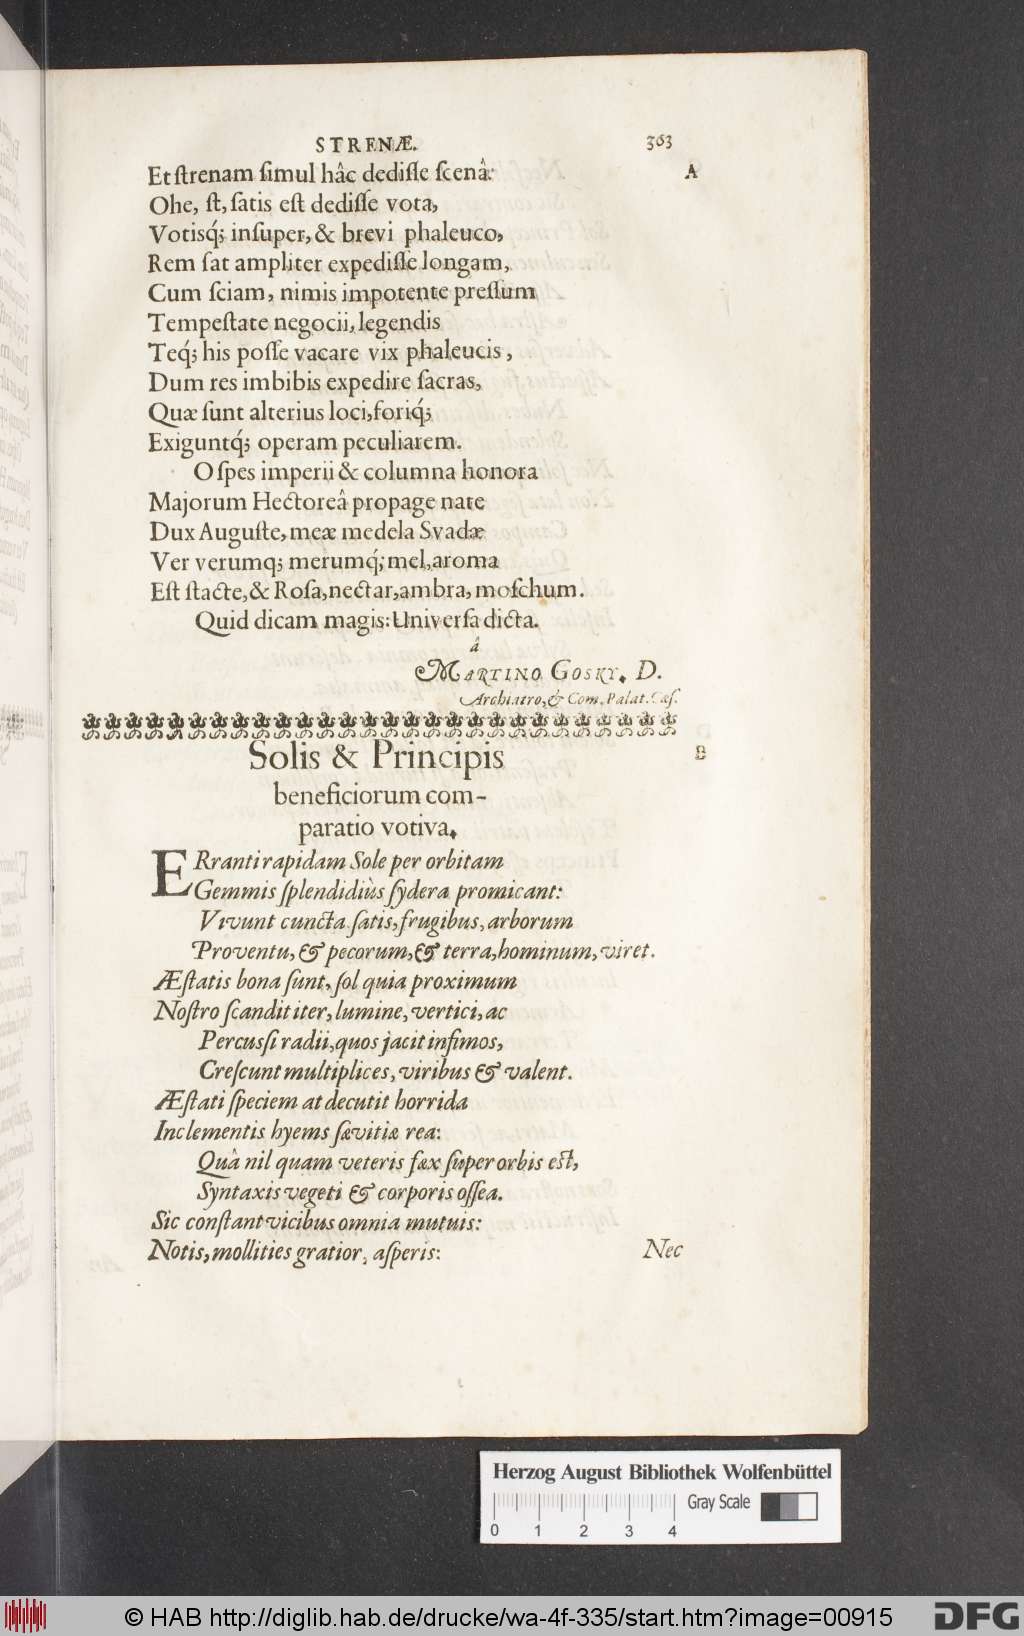 STRENÆ. 363
Et ſtrenam ſimul hâc dediſſe ſcenâ: A
Ohe, ſt, ſatis eſt dediſſe vota,
Votisq́; inſuper, & brevi phaleuco,
Rem ſat ampliter expediſſe longam,
Cum ſciam, nimis impotente preſſum
Tempeſtate negocii, legendis
Teq́; his poſſe vacare vix phaleucis,
Dum res imbibis expedire ſacras,
Quæ ſunt alterius loci, foriq́;
Exiguntq́; operam peculiarem.
O ſpes imperii & columna honora
Majorum Hectoreâ propage nate
Dux Auguſte, meæ medela Svadæ
Ver verumq; merumq́; mel, aroma
Eſt ſtacte, & Roſa, nectar, ambra, moſchum.
Quid dicam magis: Univerſa dicta.
â
MARTINO GOSKY. D.
Archiatro, & Com. Palat. Cæſ.
Solis & Principis B
beneficiorum com-
paratio votiva.
ERranti rapidam Sole per orbitam
Gemmis ſplendidiùs ſydera promicant:
Vivunt cuncta ſatis, frugibus, arborum
Proventu, & pecorum, & terra, hominum, viret.
Æſtatis bona ſunt, ſol quia proximum
Noſtro ſcandit iter, lumine, vertici, ac
Percuſſi radii, quos jacit infimos,
Creſcunt multiplices, viribus & valent.
Æſtati ſpeciem at decutit horrida
Inclementis hyems ſævitiæ rea:
Quâ nil quam veteris fæx ſuper orbis eſt,
Syntaxis vegeti & corporis oſſea.
Sic conſtant vicibus omnia mutuis:
Notis, mollities gratior, aſperis: Nec
Herzog August Bibliothek Wolfenbüttel
Gray Scale
0 1 2 3 4
© HAB http://diglib.hab.de/drucke/wa-4f-335/start.htm?image=00915 DFG